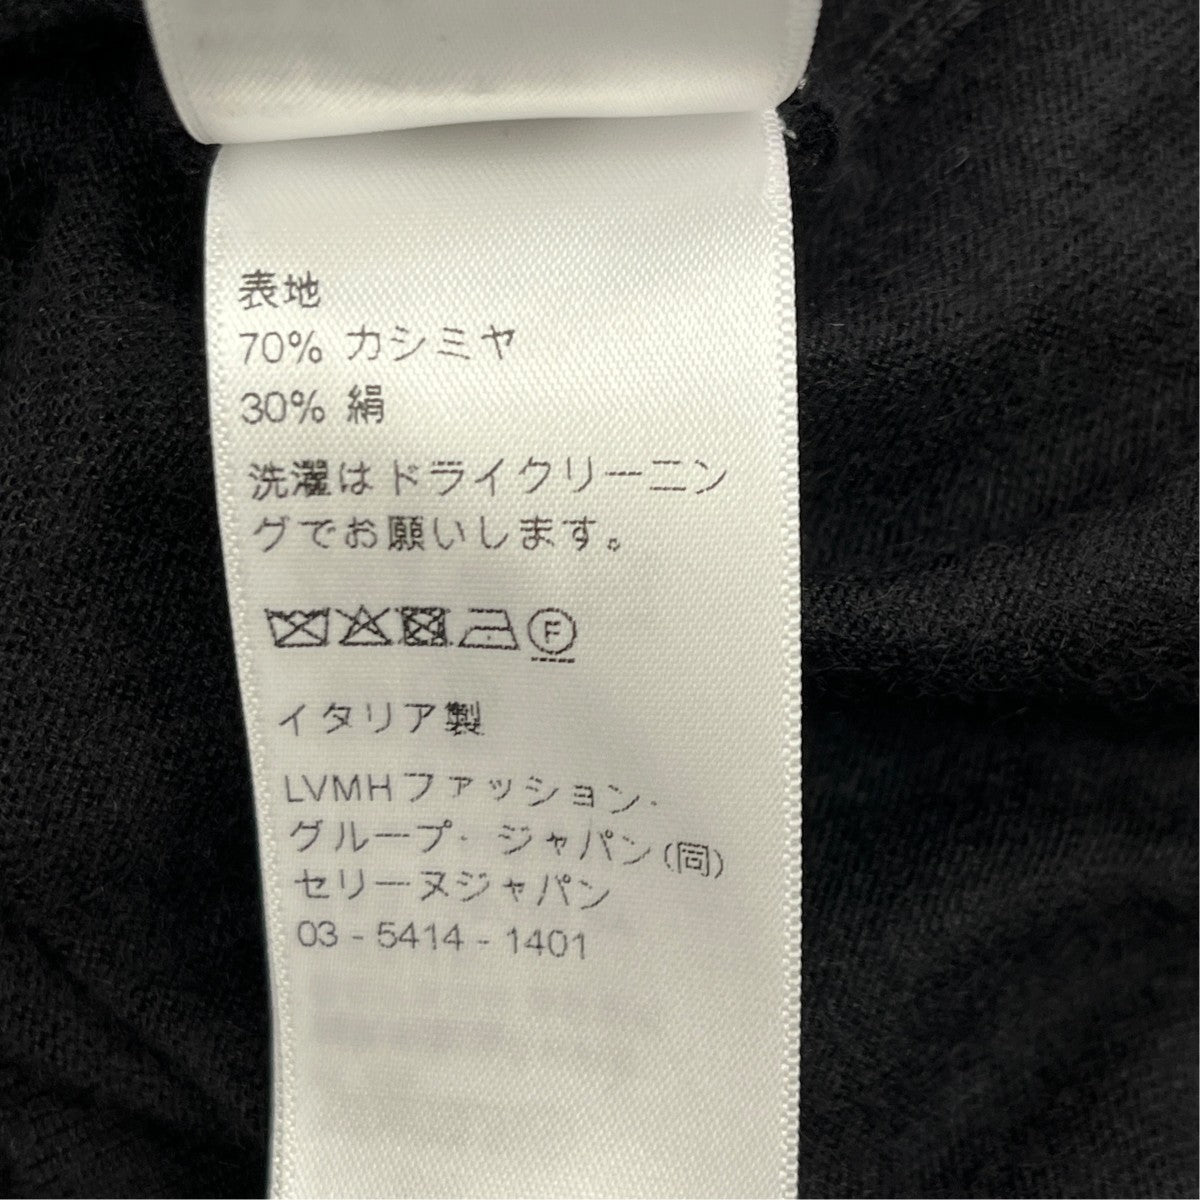 表地
70% カシミヤ
30% 絹
洗濯はドライクリーニン
グでお願いします。
F
イタリア製
LVMHファッション・
グループ・ジャパン(同)
セリーヌジャパン
03 - 5414 - 1401